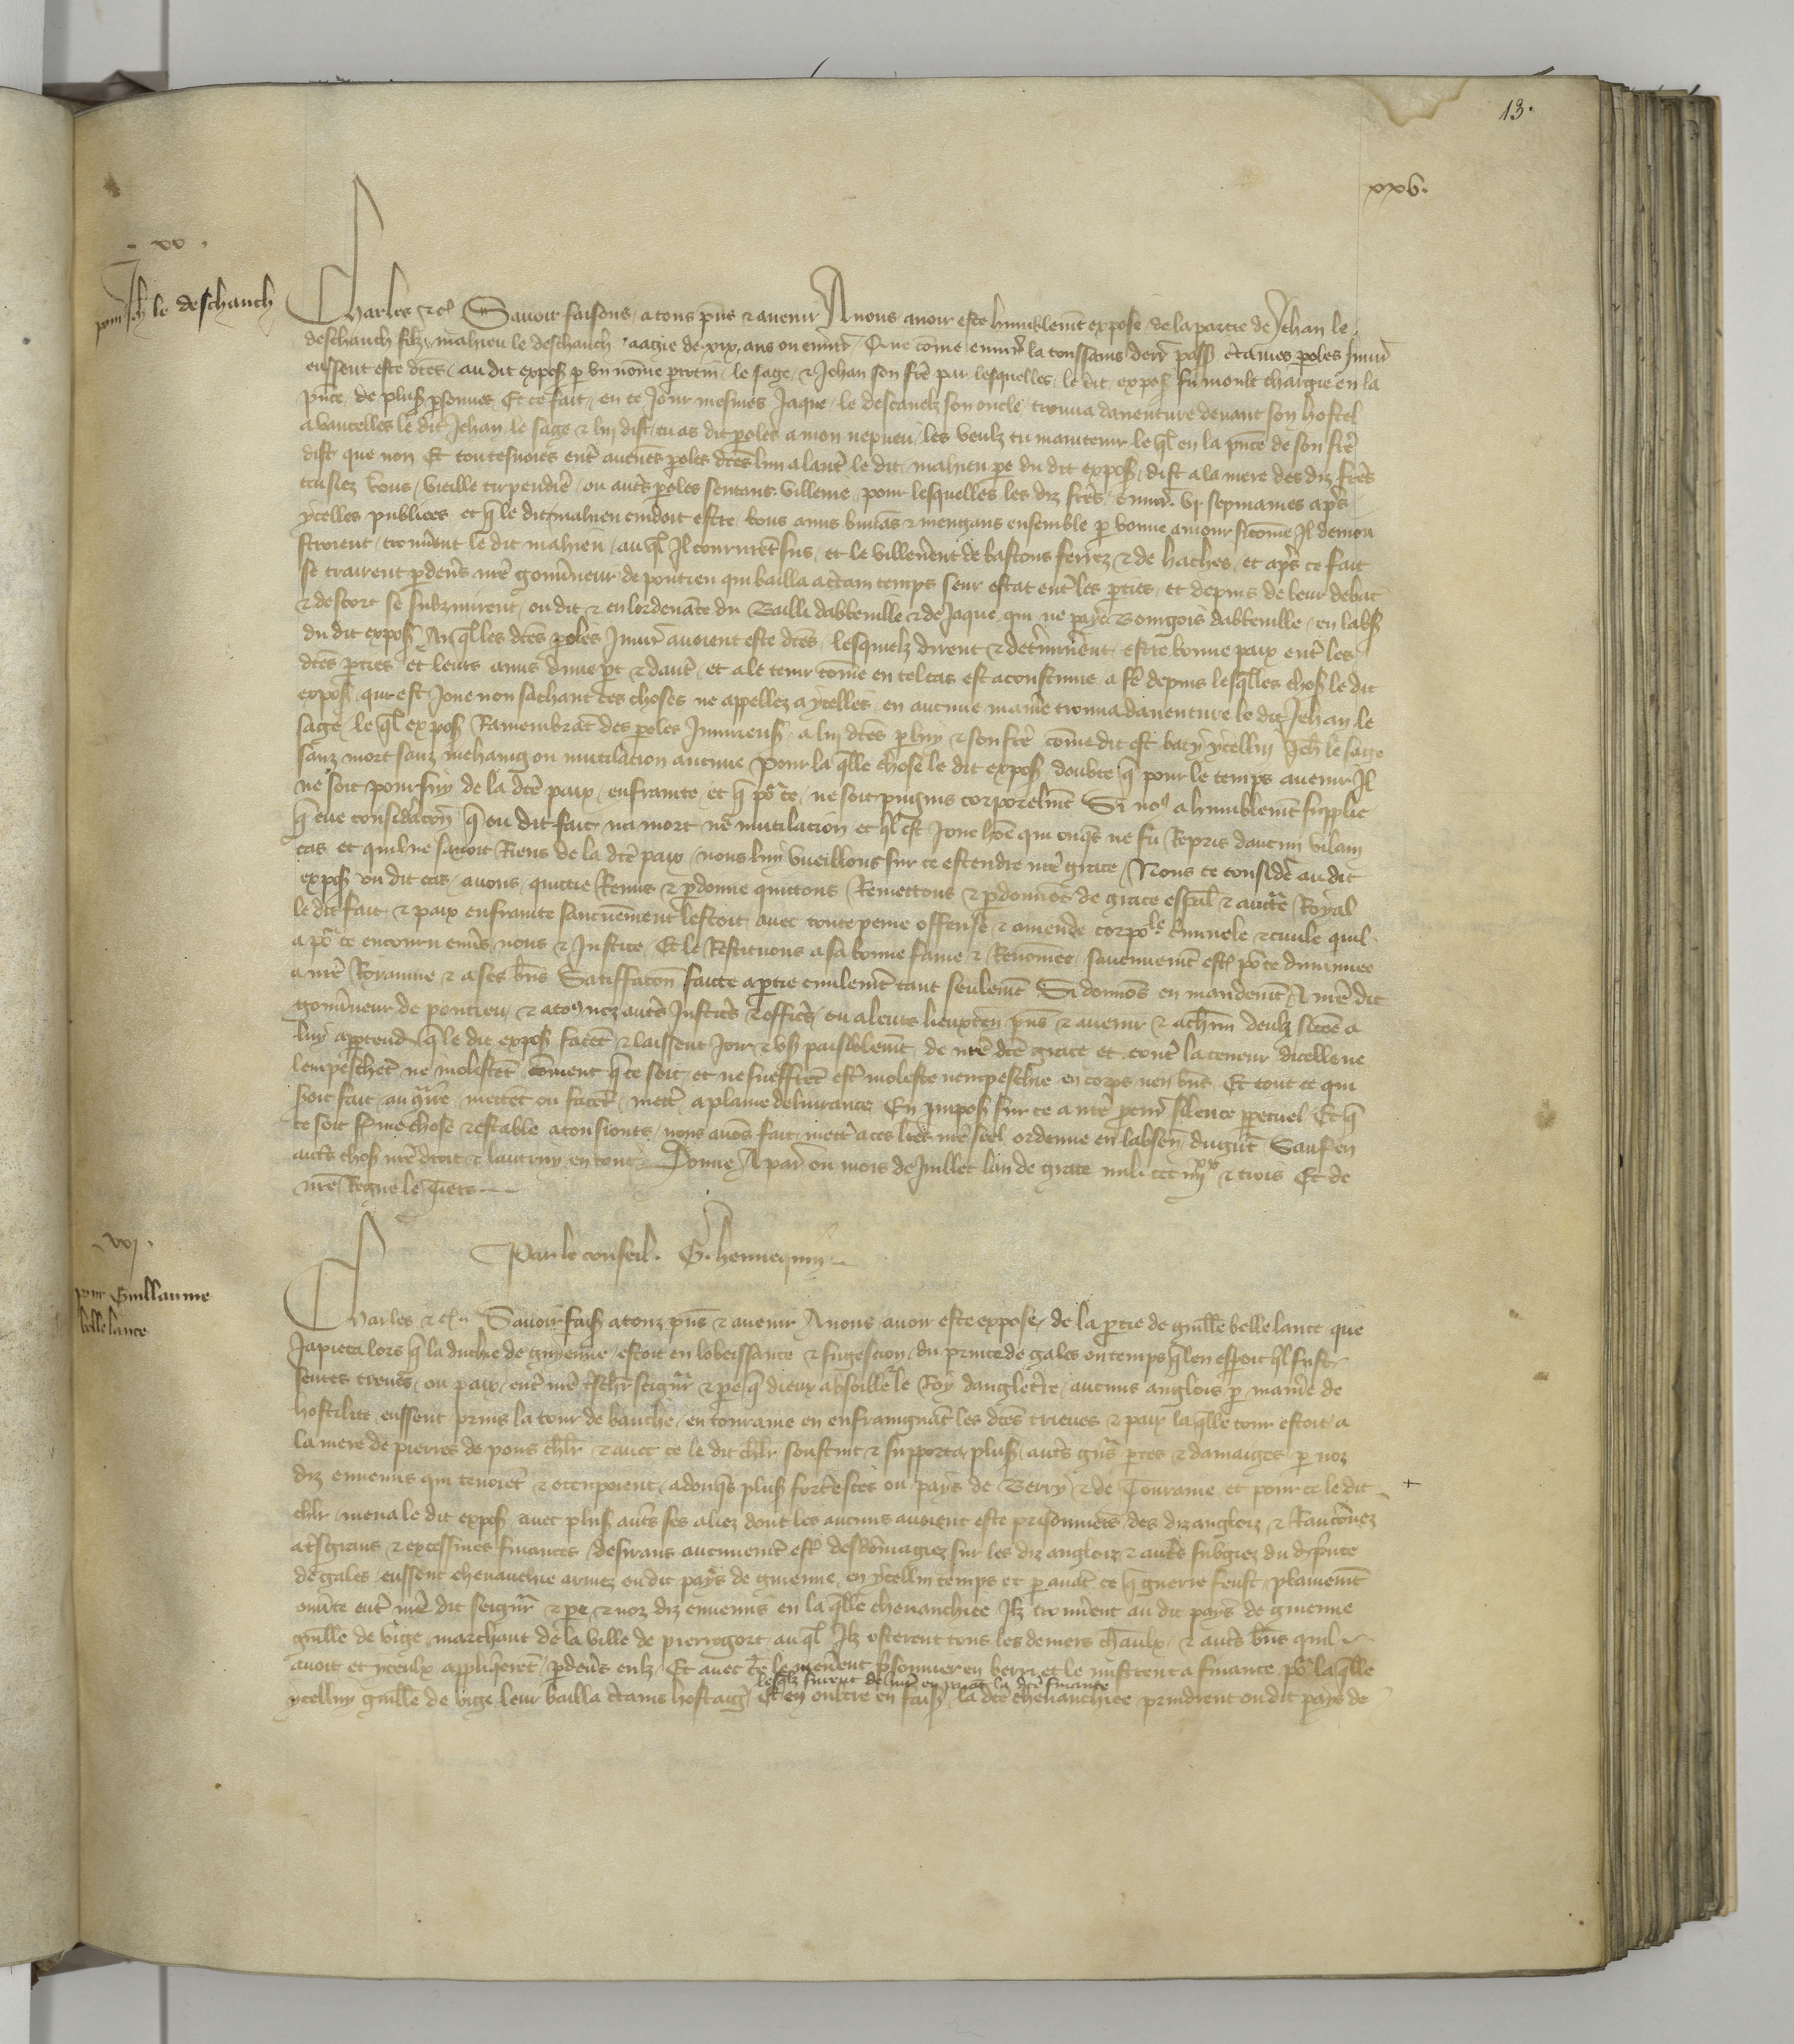 13.
xxv.
xv.
pour Jeh le deschauch
Charles etc Savoir faisons a tous pns et avenir A nous avoir este humblemt expose de la partie de Jehan le
deschauch filz mahieu le deschauch aagie de xix ans ou envir Que come envir la toussains derr pass ctaines poles Iniur
eussent este dtes au dit expos p un nome ptrin le sage et Jehan son fre par lesquelles le dit expos fu moult chargie en la
pnce de plus psonnes Et ce fait en ce Jour mesmes Jaque le descauch son oncle trouva daventure devant son hostel
a vaucelles le dit Jehan le sage et luy dist tu as dit poles a mon nepveu les veulz tu maintenir le ql en la pnce de son fre
dist que non Et toutesvoies ent aucunes poles dtes lun a laut le dit mahieu pe du dit expos dist a la mere des diz fres
vous vieille ou auts poles sentans villenie pour lesquelles les diz fres envir vj sepmaines aps
ycelles publiees et q le dit mahieu cuidoit estre tous amis buvas et mengans ensemble p bonne amour sicome Il demon
stroient trouvent le dit mahieu au ql Il coururet sus et le villenent de bastons ferrez et de haches et aps ce fait
se trairent pdevs nre gouvneur de pontieu qui bailla a ctain temps seur estat ent les pties et depuis de leur debat
et descort se subzmirent ou dit et en lordenace du Bailli dabbeville et de Jaque Bourgois dabbeville en labs
du dit expos Au ql les dtes poles Iniur avoient este dtes lesquelz dirent et detminent estre bonne paix ent les
dtes pties et leurs amis dune pt et daut et a le tenir come en tel cas est acoustume a fe depuis lesqlles chos le dit
expos qui est Jone non sachant ces choses ne appellez a ycelles en aucune manie trouva daventure le dit Jehan le
sage le ql expos Ramembrat des poles Iniurieus a luy dtes p luy et son fre come dit est baty ycelluy Jeh le sage
sanz mort sanz mehaing ou mutilacion aucune Pour la qlle chose le dit expos doubte q pour le temps avenir Il
ne soit poursuy de la dte paix enfrainte et q por ce ne soit pugnis corporelmt Si nos a humblemt supplie
q eue consideracon q ou dit fait na mort ne mutilacion et ql est Jone hoe qui onqs ne fu Repris daucun vilain
cas et quil ne savoit Riens de la dte paix nous luy vueillons sur ce estendre nre grace Nous ce considere au dit
expos ou dit cas avons quictie Remis et pdonne quictons Remettons et pdonnos de grace espal et aucte Royal
le dit fait et paix enfrainte saucunement lestoit avec toute peine offense et amende corpole criminele et civile quil
a por ce encouru envs nous et Justice Et le Restituons a sa bonne fame et Renomee saucunemt est por ce diminuee
a nre Royaume et a ses bns Satiffacon faicte a ptie civilemt tant seulemt Si donnos en mandemt A nre dit
gouvneur de pontieu et a tos nez auts Justics et offics ou a leurs lieuxten pns et avenir et a chun deulz sicoe a
luy apptend q le dit expos facet et laissent Joir et us paisiblemt de nre dte grace et cont la teneur dicelle ne
lempeschet ne molestet coment q ce soit et ne sueffret est moleste nempeschie en corps nen bns Et tout ce qui
soit fait au qre mettet ou facet mett a plaine delivrance En impos sur ce a nre pcur silence ppetuel Et q
ce soit fme chose et estable a tousjours nous avos fait mett a ces lres nre seel ordenne en labsen du gnt Sauf en
auts chos nre droit et lautruy en tout Donne A par ou mois de Juillet lan de grace mil ccc iiijxx et trois Et de
nre Regne le Tiers
Par le conseil. G. hennequin
xvj.
pour Guillaume belle lance
Charles etc Savoir fais a touz pns et avenir A nous avoir este expose de la ptie de guille belle lance que
Ja pieca lors q la duchie de guyenne estoit en lobeissance et sugescion du prince de gales ou temps qlen esperoit ql fust
seures treues ou paix ent nre tschr seignr et pe q dieux absoille et le Roy dangletre aucuns anglois p manie de
hostilite eussent prins la tour de bauche en touraine en enfraignat les dtes trieves et paix la qlle tour estoit a
la mere de pierres de pons chlr et avec ce le dit chlr soustint et supporta plus auts gns ptes et damaiges p noz
diz ennemis qui tenoiet et occupoient adonqs plus fortesces ou pays de Berry et de Touraine et pour ce le dit
chlr mena le dit expos avec plus auts ses aliez dont les aucuns avoient este prisonniers des diz anglois et Ranconez
a tsgrans et excessives finances desirans aucunemt est desdomagiez sur les diz anglois et auts subgiez du d prince
de gales eussent chevauchie armez ou dit pays de guienne en ycelluy temps et p avat ce q guerre feust plainemt
ouvte ent nre dit seignr et pe et noz diz ennemis en la qlle chevauchiee Ilz trouvent au dit pays de guienne
guille de vige marchant de la ville de pierregort au ql Ilz osterent tous les deniers chvaulx et auts bns quil
avoit et yceulx appliqueret pdevs eulz Et avec ce le menent prisonnier en berri et le mistrent a finance por la qlle
lesqlz furent deliv en paiat la dte finance
ycelluy guille de vige leur bailla ctains hostaig Et en oultre en fais la dte chevauchiee prindrent ou dit pays de